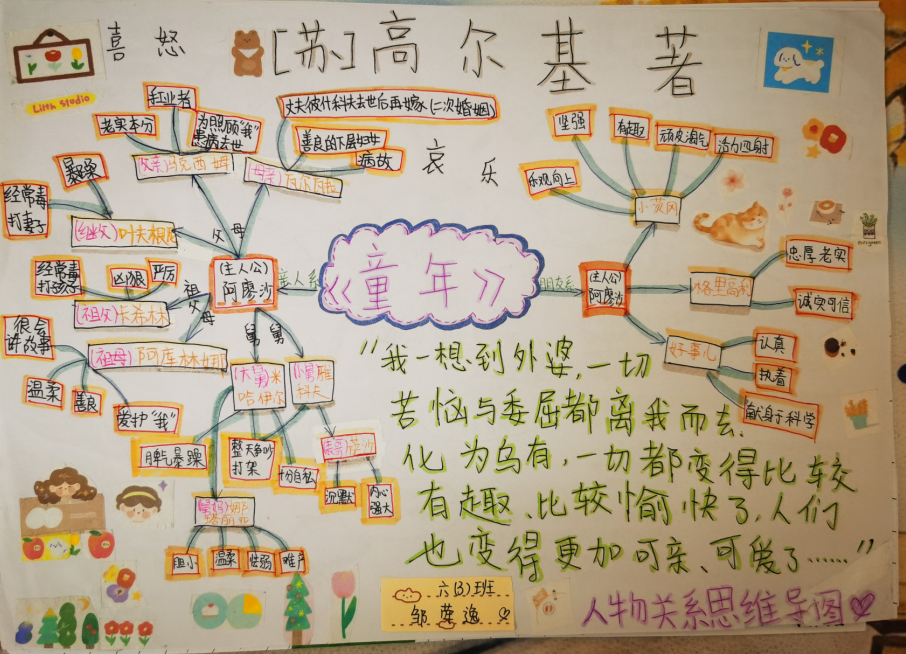 喜怒
[苏]高尔基著
Lilth Studio
哀乐
《童年》
亲人系
朋友系
(主人公)
阿廖沙
父母
(父亲)马克西姆
老实本分
扛业者
为照顾"我"
患病去世
(母亲)瓦尔瓦拉
丈夫彼什科夫去世后再嫁(二次婚姻)
善良的下层妇女
病故
(继父)叶夫根尼
暴躁
经常毒
打妻子
祖父母
(祖父)卡希林
经常毒
打孩子
凶狠
严厉
(祖母)阿库林娜
很会
讲故事
温柔
善良
爱护"我"
舅舅
(大舅)米
哈伊尔
(小舅)雅
科夫
脾气暴躁
整天争吵
打架
十分自私
(表哥)萨沙
沉默
内心
强大
胆小
温柔
怯弱
难产
(主人公)
阿廖沙
小茨冈
乐观向上
坚强
有趣
顽皮淘气
活力四射
格里高利
忠厚老实
诚实可信
好事儿
认真
执着
献身于科学
"我一想到外婆,一切
苦恼与委屈都离我而去、
化为乌有,一切都变得比较
有趣、比较愉快了,人们
也变得更加可亲、可爱了……"
六(3)班
人物关系思维导图